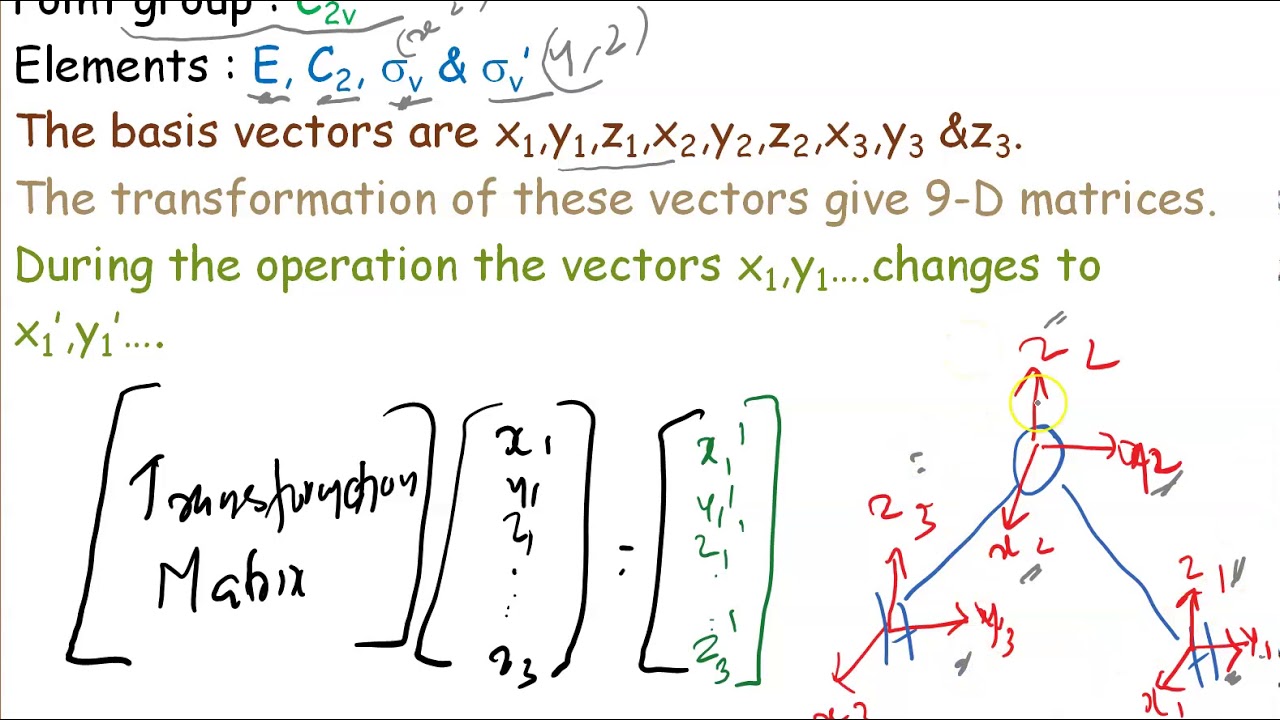 Point group : C₂ᵥ
(x z)
Elements : E, C₂, σᵥ & σᵥ' (y,z)
The basis vectors are x₁,y₁,z₁,x₂,y₂,z₂,x₃,y₃ &z₃.
The transformation of these vectors give 9-D matrices.
During the operation the vectors x₁,y₁....changes to
x₁',y₁'....
Transformation
Matrix
x₁
y₁
z₁
:
z₃
=
x₁'
y₁'
z₁'
:
z₃'
z₂
y₂
x₂
z₃
y₃
x₃
z₁
y₁
x₁